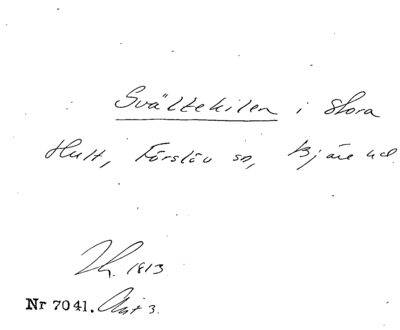 Svältekilen i Stora
Hult, Förslöv sn, Bjäre hd
1813
Nr 7041. 3.